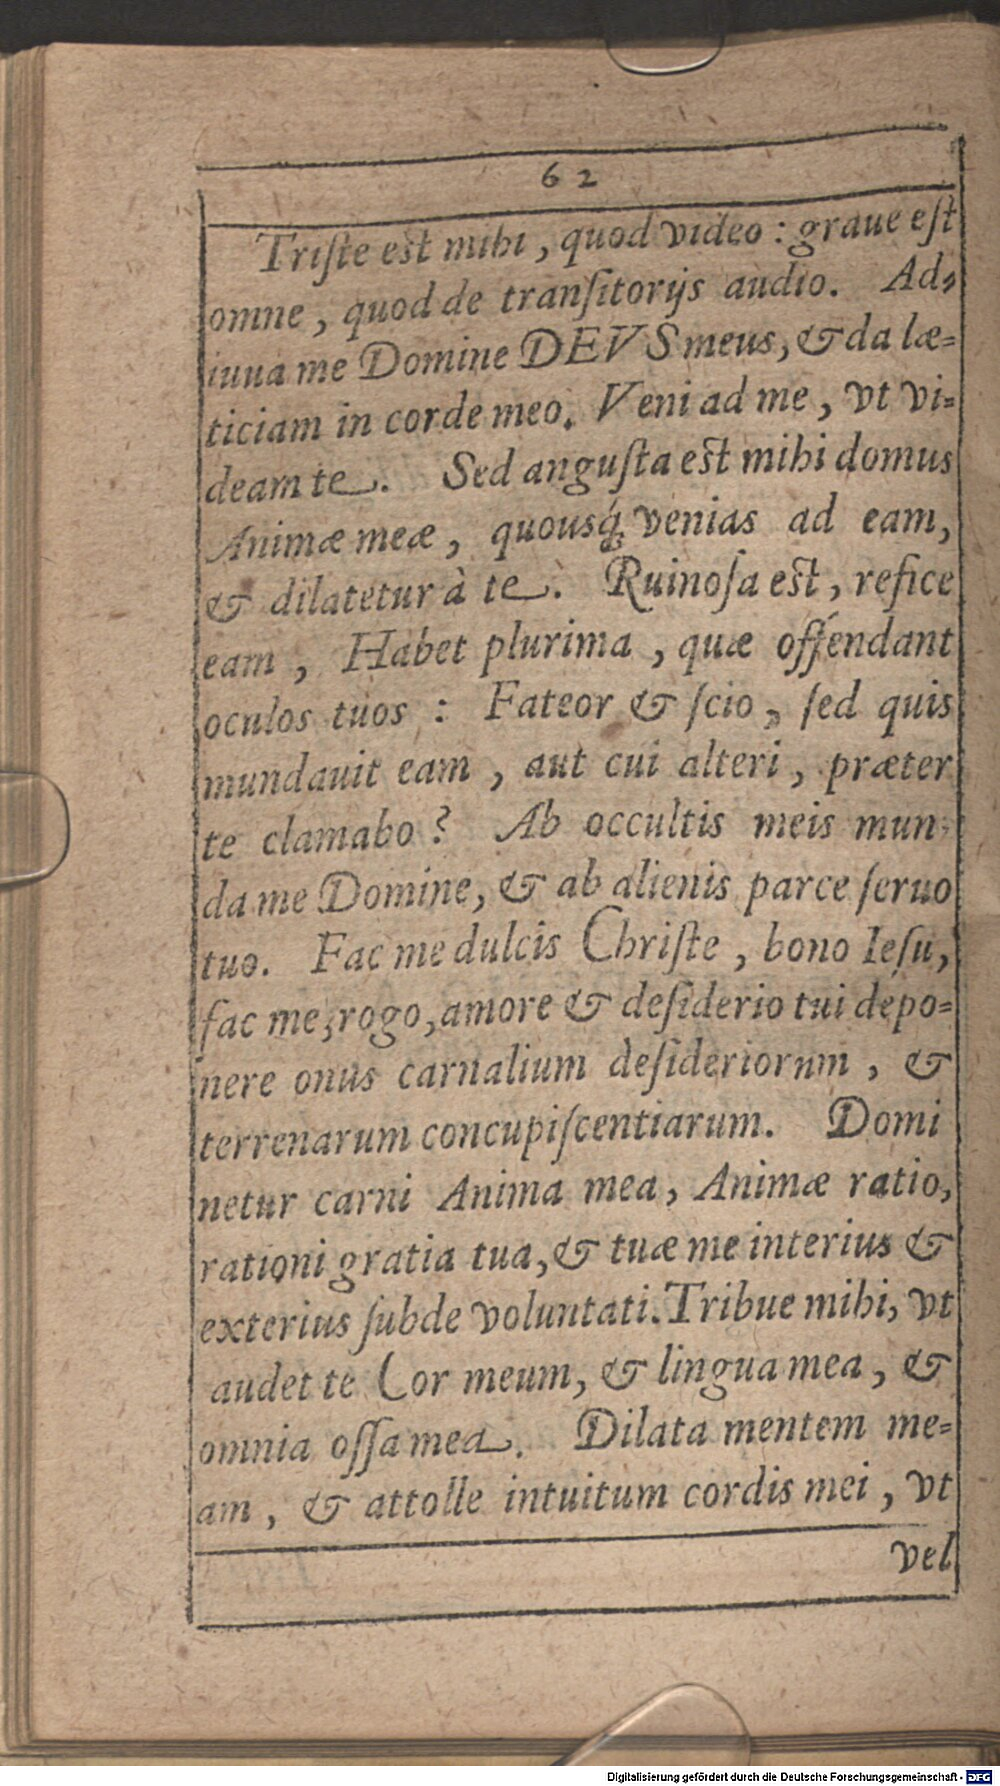 62
Triſte est mihi, quod video: graue eſt
omne, quod de tranſitorijs audio. Ad-
iuua me Domine DEVS meus, & da læ-
ticiam in corde meo. Veni ad me, vt vi-
deam te. Sed anguſta est mihi domus
Animæ meæ, quousq́; venias ad eam,
& dilatetur à te. Ruinoſa est, refice
eam, Habet plurima, quæ offendant
oculos tuos: Fateor & ſcio, ſed quis
mundauit eam, aut cui alteri, præter
te clamabo? Ab occultis meis mun-
da me Domine, & ab alienis parce ſeruo
tuo. Fac me dulcis Chriſte, bono Ieſu,
fac me, rogo, amore & deſiderio tui depo-
nere onus carnalium deſideriorum, &
terrenarum concupiſcentiarum. Domi
netur carni Anima mea, Animæ ratio,
rationi gratia tua, & tuæ me interius &
exterius ſubde voluntati. Tribue mihi, vt
audet te Cor meum, & lingua mea, &
omnia oſſa mea. Dilata mentem me-
am, & attolle intuitum cordis mei, vt
vel
Digitalisierung gefördert durch die Deutsche Forschungsgemeinschaft - DFG